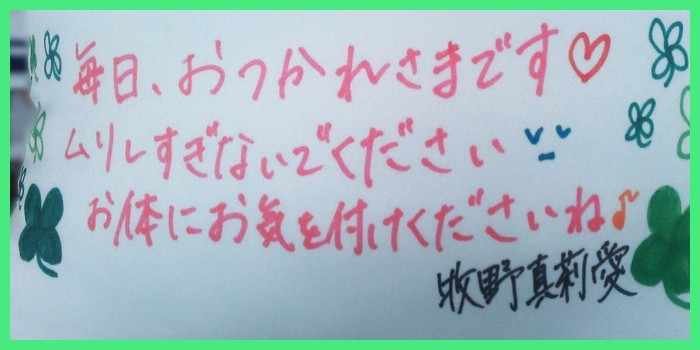 毎日、おつかれさまです♡
ムリしすぎないでください
お体にお気を付けくださいね♪
牧野真莉愛